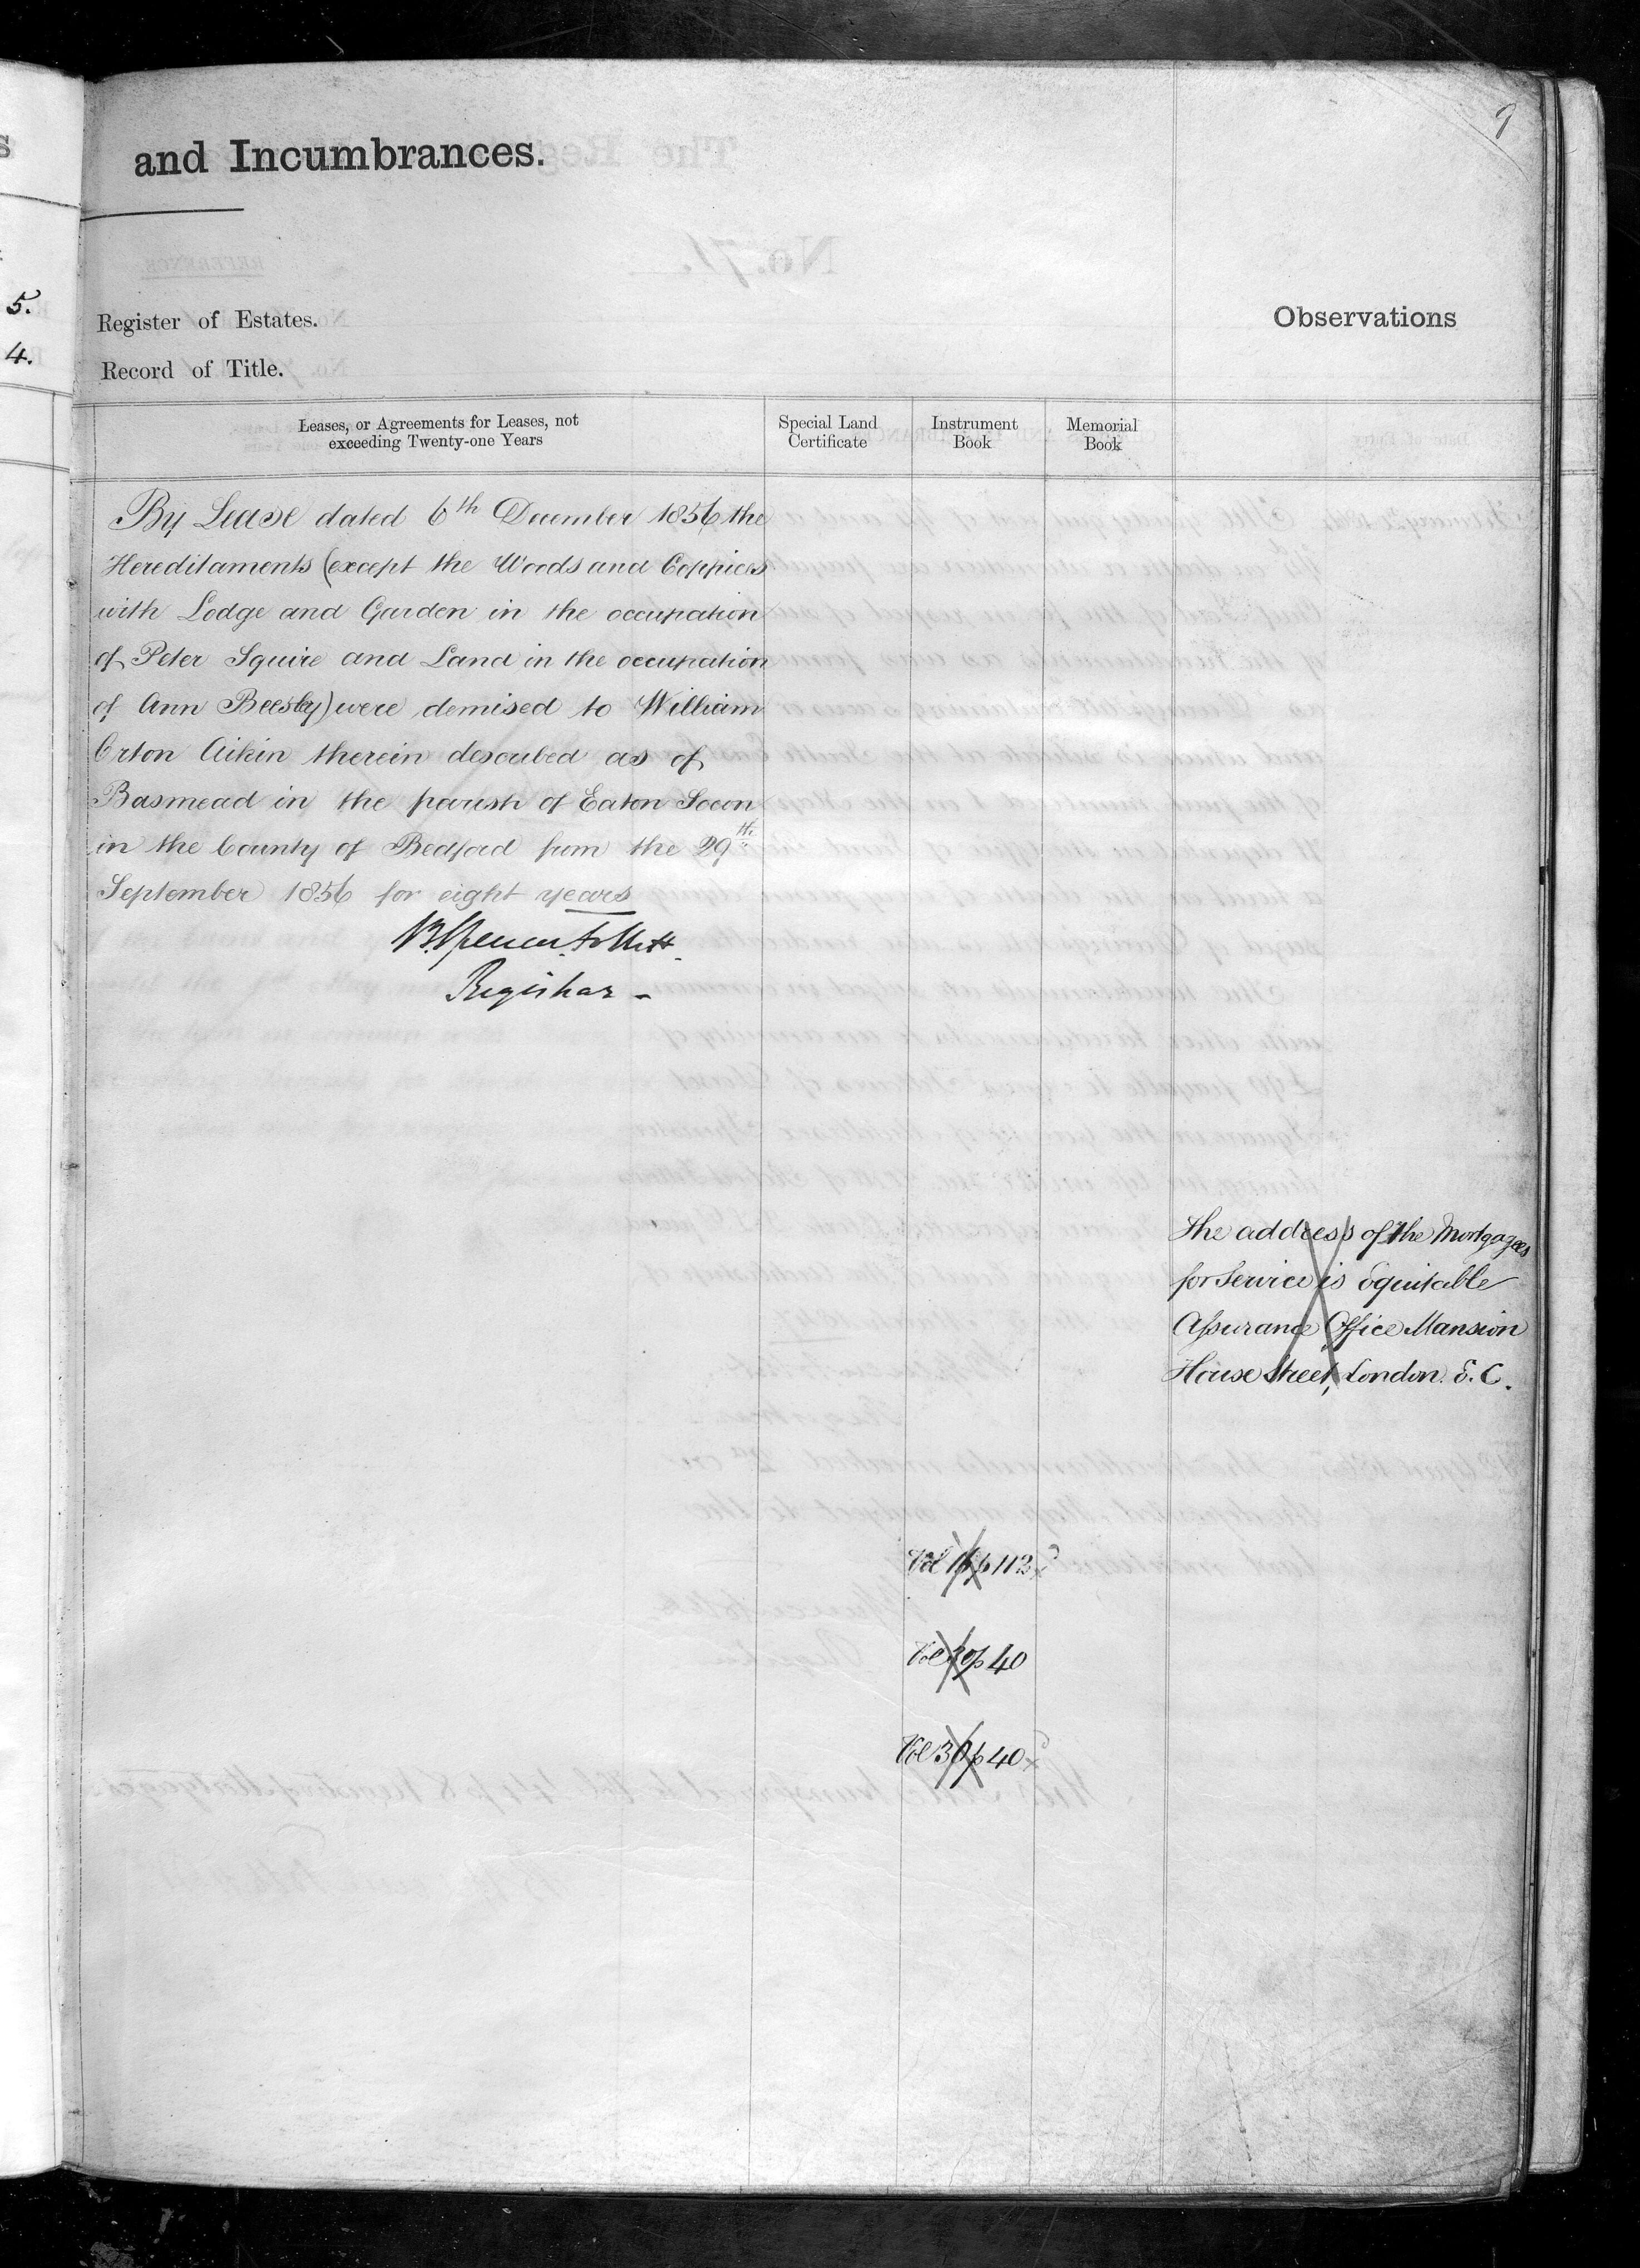 9
and Incumbrances.
5.
Register of Estates.
Observations
4.
Record of Title.
Leases, or Agreements for Leases, not
exceeding Twenty-one Years
Special Land
Certificate
Instrument
Book
Memorial
Book
By Lease dated 6th December 1856 the
Hereditaments (except the Woods and Coppices
with Lodge and Garden in the occupation
of Peter Squire and Land in the occupation
of Ann Beesley) were demised to William
Orton Aikin therein described as of
Basmead in the parish of Eaton Socon
in the County of Bedford from the 29th
September 1856 for eight years
Registrar -
The address of the Mortgagees
for Service is Equitable
Assurance Office Mansion
House Street, London. E. C.
Vol 16 p 113
Vol 30 p 40
Vol 30 p 40